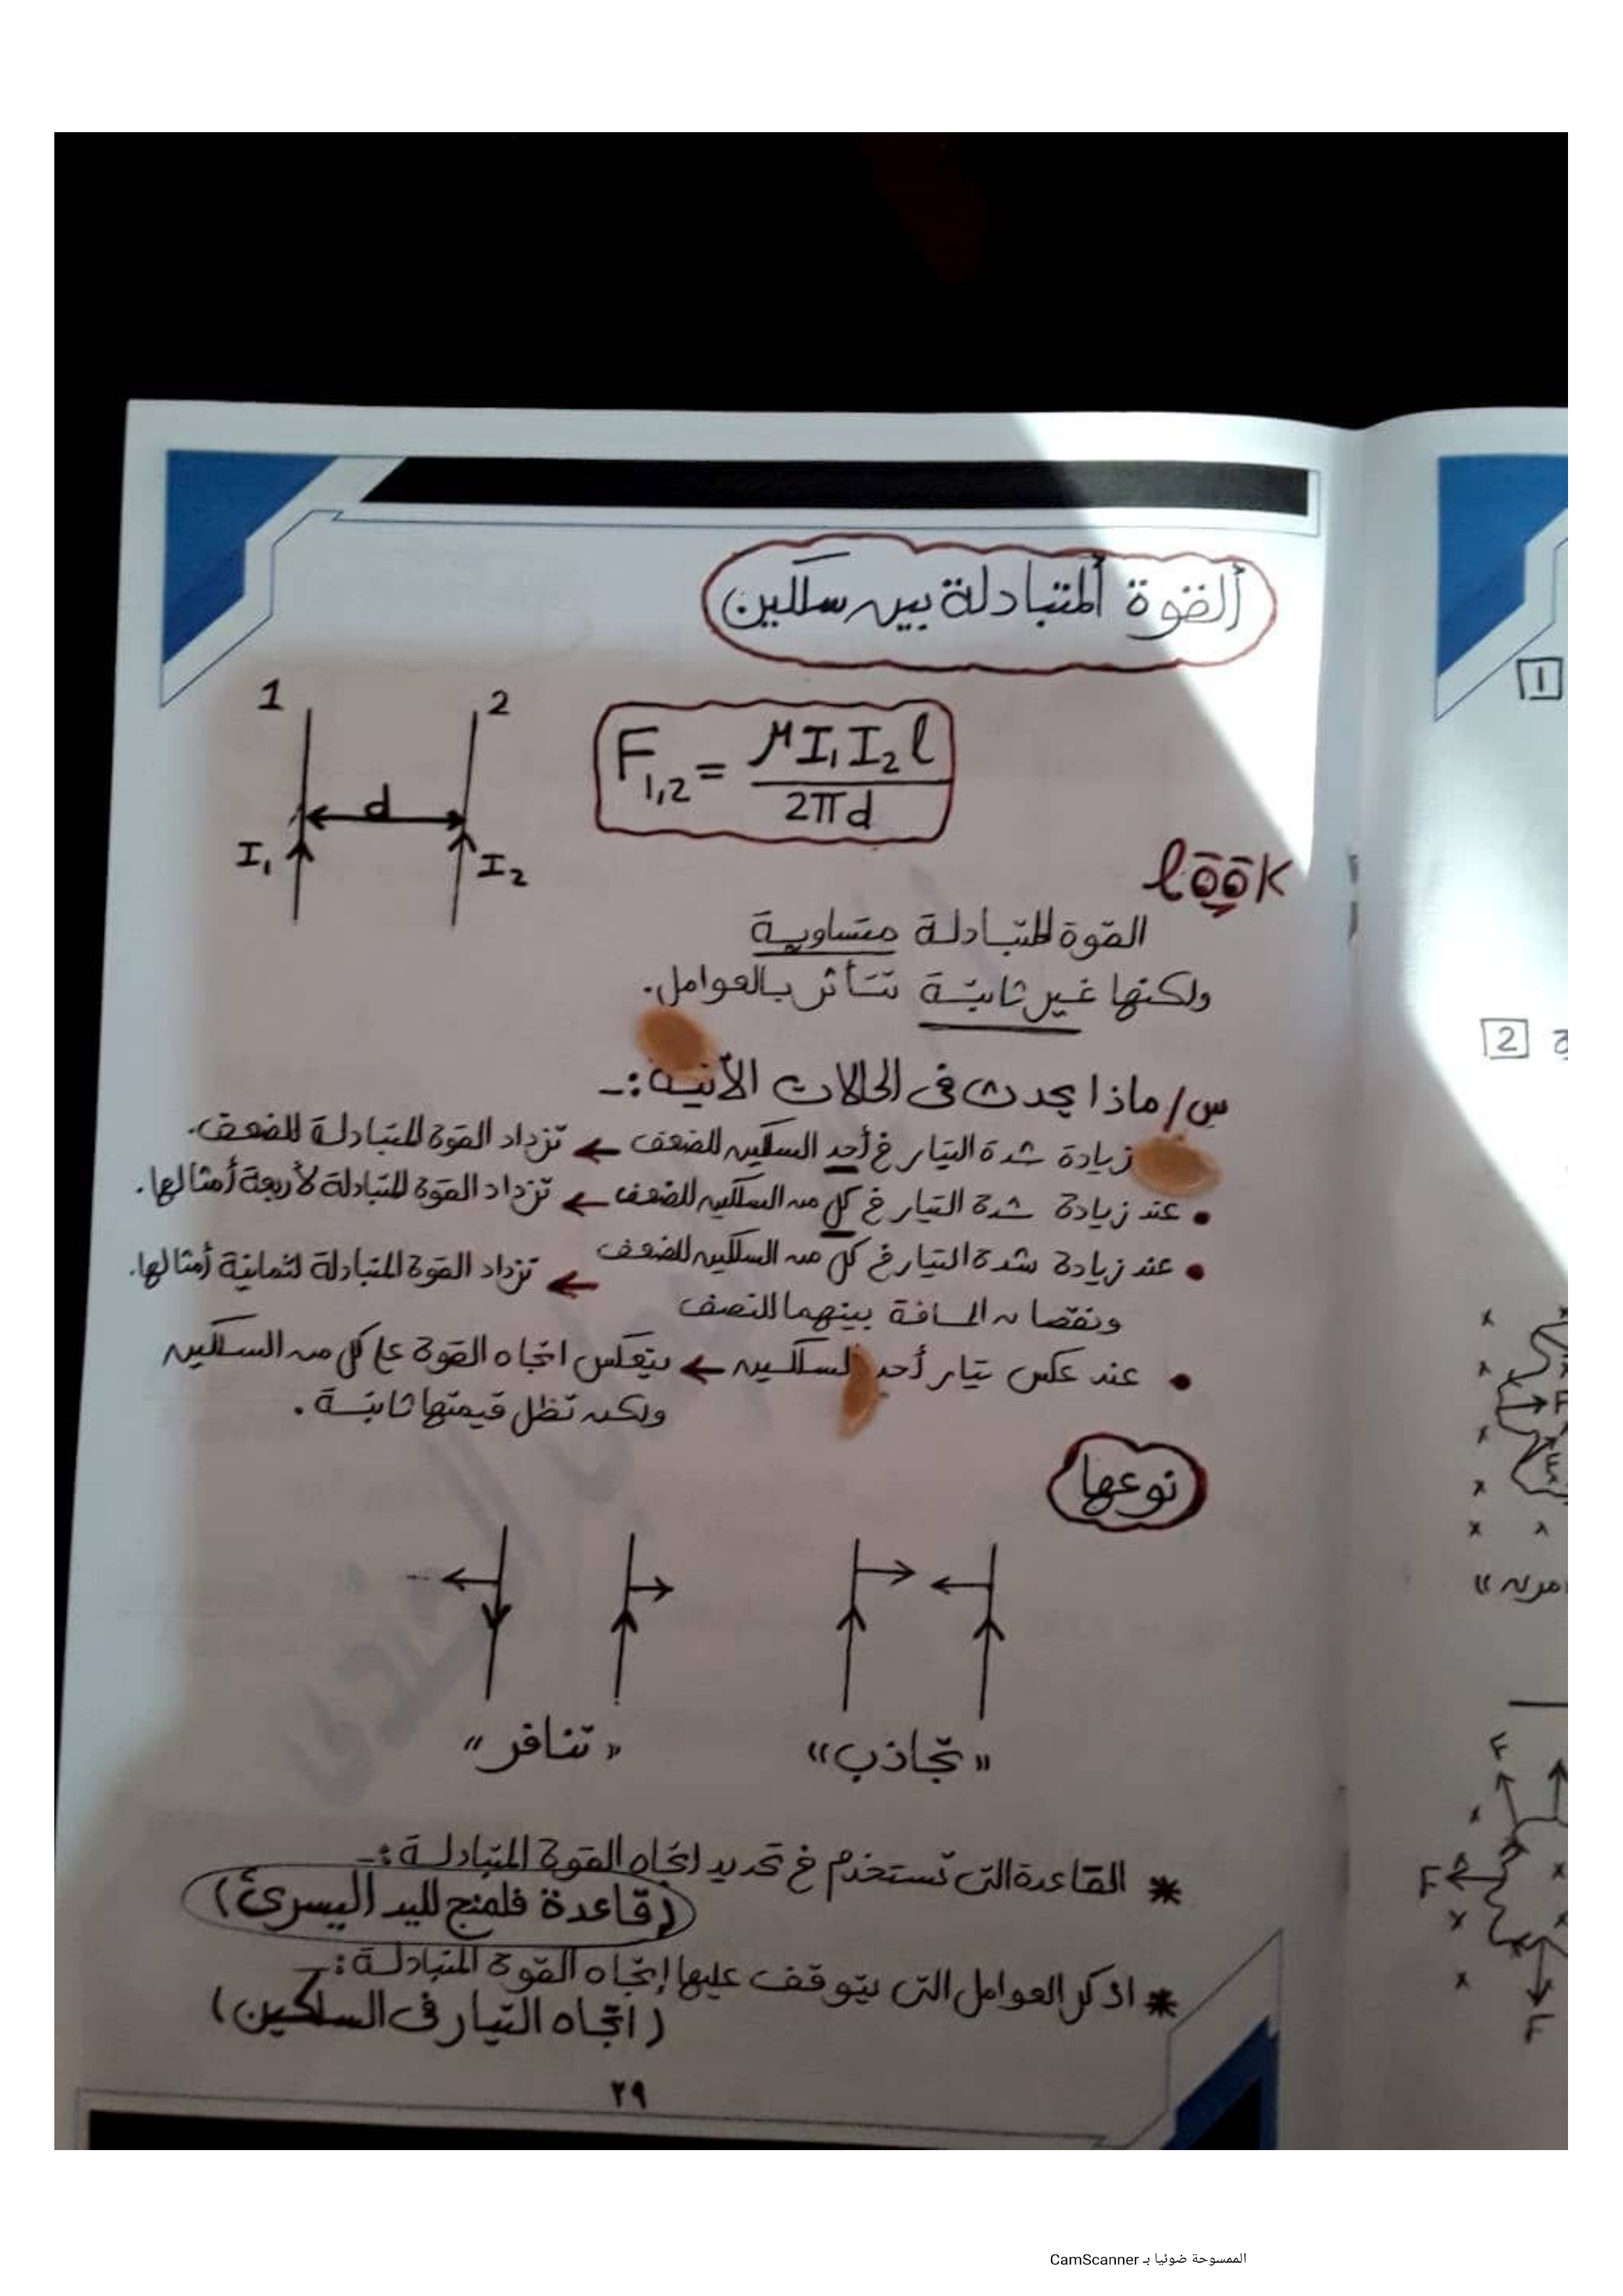 القوة المتبادلة بين سلكين
1 2
F1,2 = μI1I2l / 2πd
d
I1 I2
look
القوة المتبادلة متساوية
ولكنها غير ثابتة تتأثر بالعوامل.
س/ ماذا يحدث فى الحالات الأتية :-
زيادة شدة التيار في أحد السلكين للضعف ← تزداد القوة المتبادلة للضعف.
• عند زيادة شدة التيار في كل من السلكين للضعف ← تزداد القوة المتبادلة لأربعة أمثالها.
• عند زيادة شدة التيار في كل من السلكين للضعف ← تزداد القوة المتبادلة لثمانية أمثالها.
ونقصان المسافة بينهما للنصف
• عند عكس تيار أحد السلكين ← ينعكس اتجاه القوة على كل من السلكين
ولكن تظل قيمتها ثابتة .
نوعها
"تجاذب" "تنافر"
* القاعدة التى تستخدم في تحديد اتجاه القوة المتبادلة :-
(قاعدة فلمنج لليد اليسرى)
* اذكر العوامل التى يتوقف عليها إتجاه القوة المتبادلة :-
(اتجاه التيار فى السلكين)
٢٩
1
2
F
F
F
F
الممسوحة ضوئيا بـ CamScanner